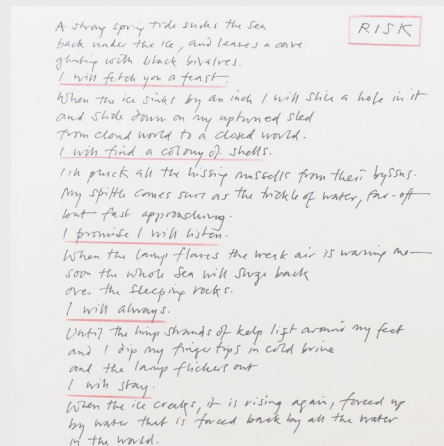 RISK
A strong spring tide sucks the sea
back under the ice, and leaves a cave
glinting with black bivalves.
I will fetch you a feast.
When the ice sinks by an inch I will slice a hole in it
and slide down on my upturned sled
from cloud world to a closed world.
I will find a colony of shells.
I'll pluck all the hissing mussells from their byssus.
My spittle comes sure as the trickle of water, far-off
but fast approaching.
I promise I will listen.
When the lamp flares the weak air is warning me—
soon the whole sea will surge back
over the sleeping rocks.
I will always.
Until the limp strands of kelp lift around my feet
and I dip my finger tips in cold brine
and the lamp flickers out
I will stay.
When the ice creaks, it is rising again, forced up
by water that is forced back by all the water
in the world.